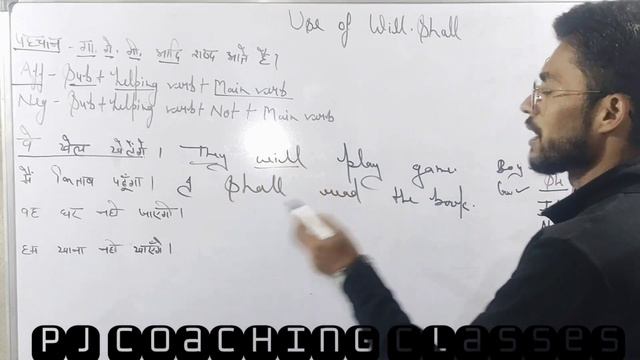 Use of Will. Shall
पहचान - गा. गे. गी. आदि शब्द आते है?
Aff - Sub + helping varb + Main varb
Neg - Sub + helping varb + Not + Main varb
वे खेल खेलेंगे। They will play game.
मैं किताब पढूँगा। I shall read the book.
वह घर नही जाएगी।
हम खाना नही खाएँगे।
Boy
PJ COACHING CLasses